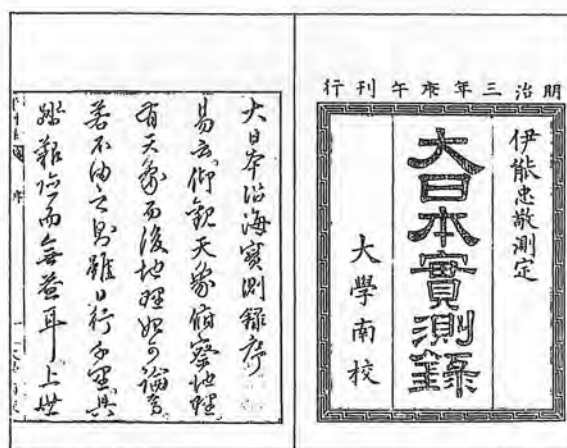 明治三年庚午刊行
伊能忠敬測定
大日本實測錄
大學南校
大日本沿海實測録序
易云仰觀天象俯察地理
有天象而後地理始可論焉
若不由之則雖日行千里具
踏艱險而無益耳上世
序